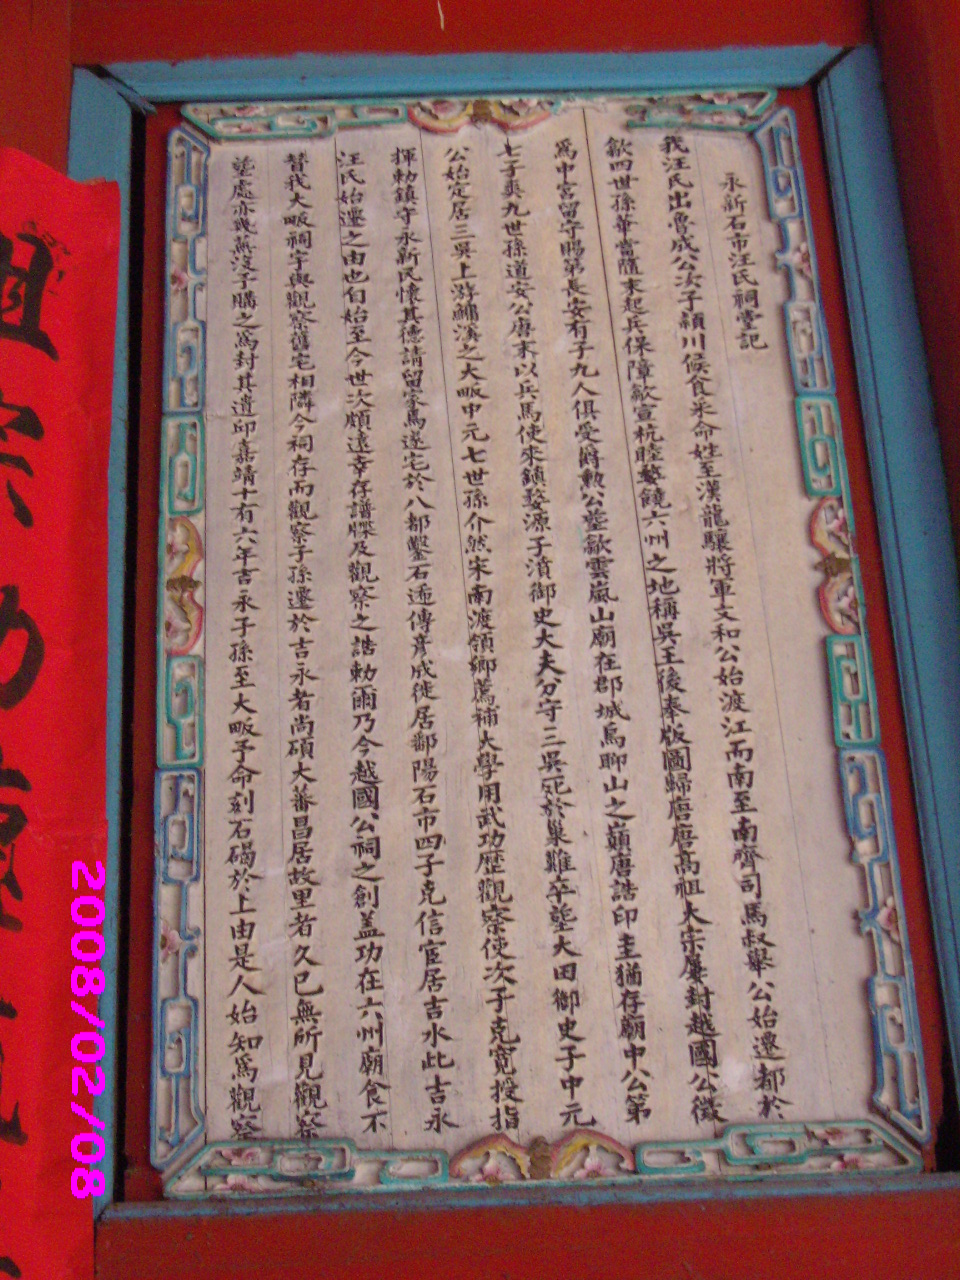 永新石市汪氏祠堂記
我汪氏出魯成公次子潁川候食采命姓至漢龍驤將軍文和公始渡江而南至南齊司馬叔舉公始遷都於
歙四世孫華當隨末起兵保障歙宣杭睦婺饒六州之地稱吳王後奉版圖歸唐唐高祖太宗屢封越國公徵
爲中宮留守賜第長安有子九人俱受爵勲公塟歙雲嵐山廟在郡城烏聊山之巔唐誥印圭猶存廟中公第
七子爽九世孫道安公唐末以兵馬使來鎮婺源子濆御史大夫分守三吳死於巢難卒塟大田御史子中元
公始定居三吳上游鱅溪之大畈中元七世孫介然宋南渡領鄉薦補大學用武功歷觀察使次子克寬授指
揮勅鎮守永新民懷其德請留家焉遂宅於八都鑿石逓傳彦成徙居鄱陽石市四子克信宦居吉水此吉永
汪氏始遷之由也自始至今世次頗遠幸存譜牒及觀察之誥勅爾乃今越國公祠之創盖功在六州廟食不
替我大畈祠宇與觀察舊宅相隣今祠存而觀察子孫遷於吉永者尚碩大蕃昌居故里者久已無所見觀察
塟處亦幾蕪沒予購之爲封其遺邱嘉靖十有六年吉永子孫至大畈予命刻石碣於上由是人始知爲觀察
祖宗功德
2008/02/08